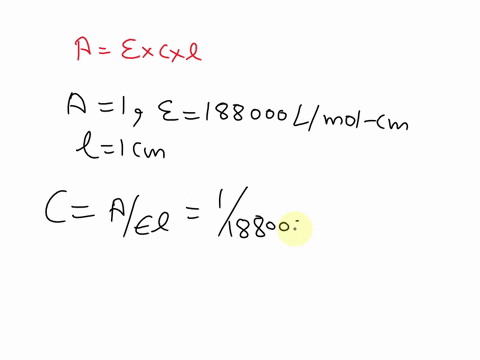 A = ε x c x l
A = 1, ε = 188000 L/mol-cm
l = 1 cm
C = A/εl = 1/18800